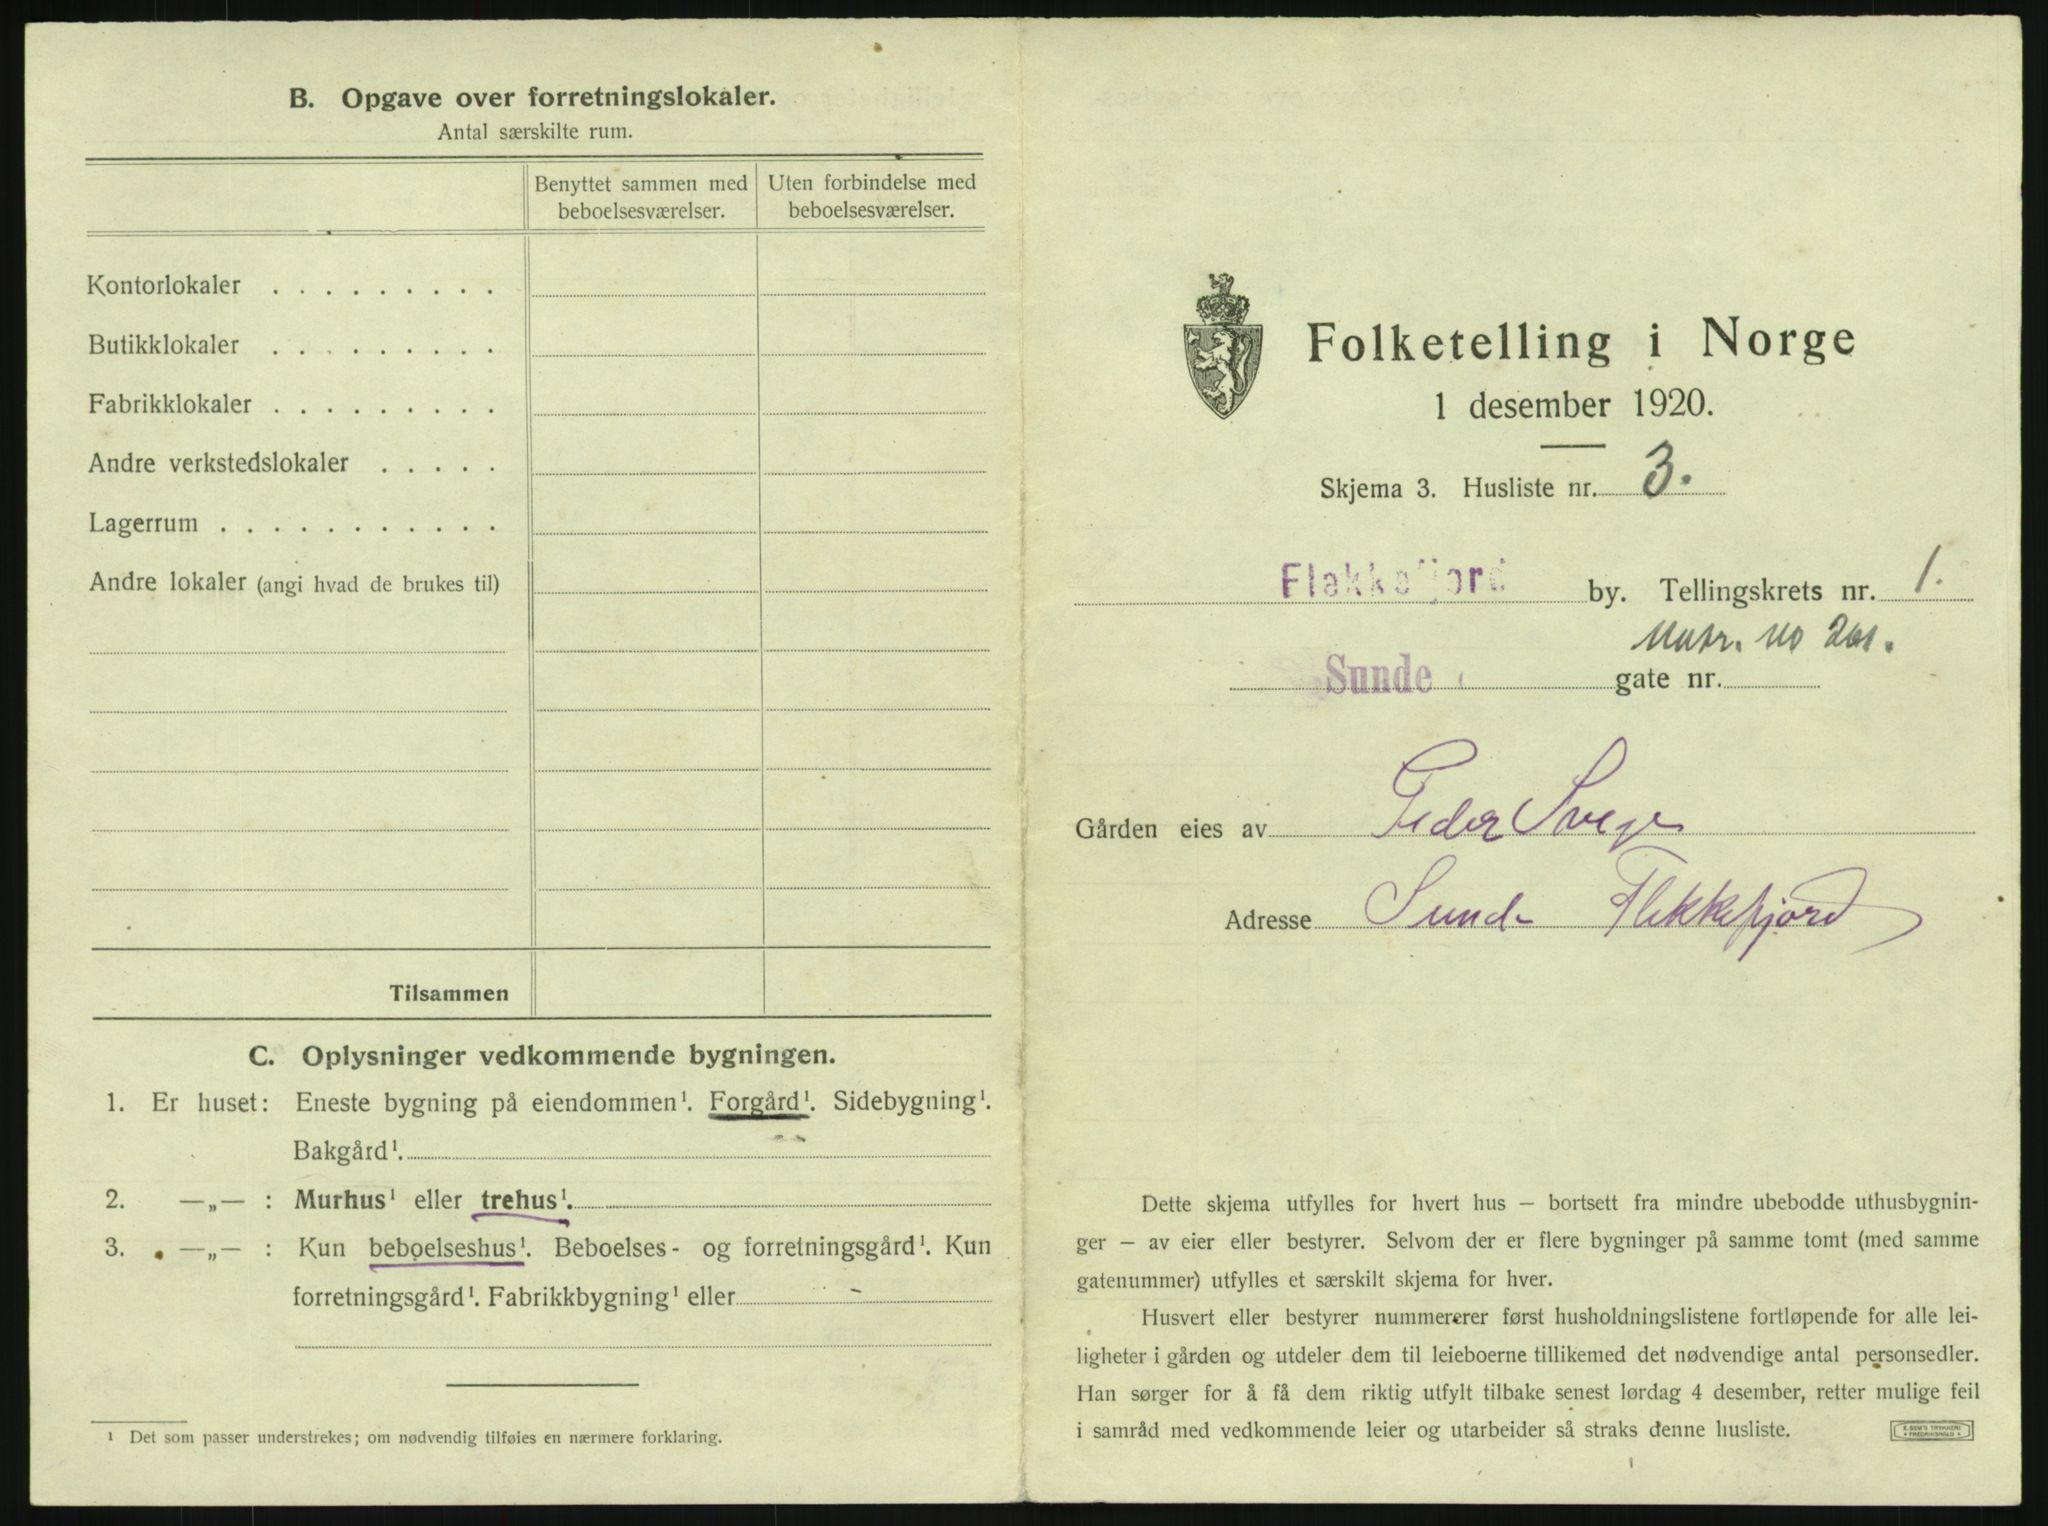 B. Opgave over forretningslokaler.
Antal særskilte rum.
Benyttet sammen med beboelsesværelser.
Uten forbindelse med beboelsesværelser.
Kontorlokaler . . . . . . . . .
Butikklokaler . . . . . . . . .
Fabrikklokaler . . . . . . . . .
Andre verkstedslokaler . . . . .
Lagerrum . . . . . . . . . . .
Andre lokaler (angi hvad de brukes til)
Tilsammen
C. Oplysninger vedkommende bygningen.
1. Er huset: Eneste bygning på eiendommen¹. Forgård¹. Sidebygning¹.
Bakgård¹.
2. —„— : Murhus¹ eller trehus¹.
3. —„— : Kun beboelseshus¹. Beboelses- og forretningsgård¹. Kun
forretningsgård¹. Fabrikkbygning¹ eller
¹ Det som passer understrekes; om nødvendig tilføies en nærmere forklaring.
Folketelling i Norge
1 desember 1920.
Skjema 3. Husliste nr. 3.
Flekkefjord by. Tellingskrets nr. 1.
Matr. no 261.
Sunde gate nr.
Gården eies av Peder
Adresse Sunde Flekkefjord
Dette skjema utfylles for hvert hus — bortsett fra mindre ubebodde uthusbygnin-
ger — av eier eller bestyrer. Selvom der er flere bygninger på samme tomt (med samme
gatenummer) utfylles et særskilt skjema for hver.
Husvert eller bestyrer nummererer først husholdningslistene fortløpende for alle lei-
ligheter i gården og utdeler dem til leieboerne tillikemed det nødvendige antal personsedler.
Han sørger for å få dem riktig utfylt tilbake senest lørdag 4 desember, retter mulige feil
i samråd med vedkommende leier og utarbeider så straks denne husliste.
E. SEM'S TRYKKERI
FREDRIKSHALD